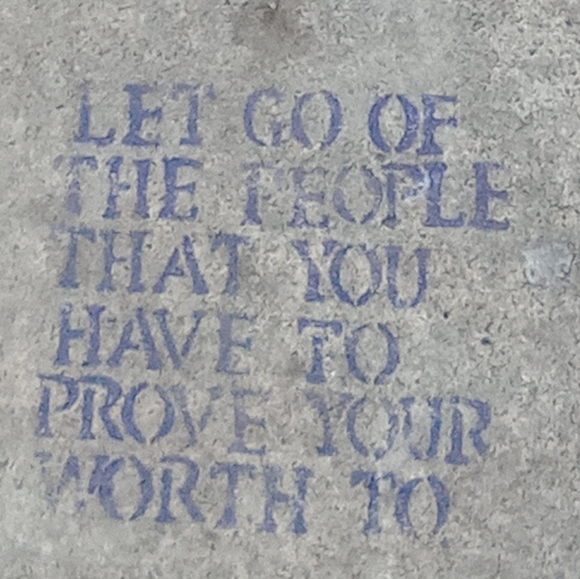 LET GO OF
THE PEOPLE
THAT YOU
HAVE TO
PROVE YOUR
WORTH TO